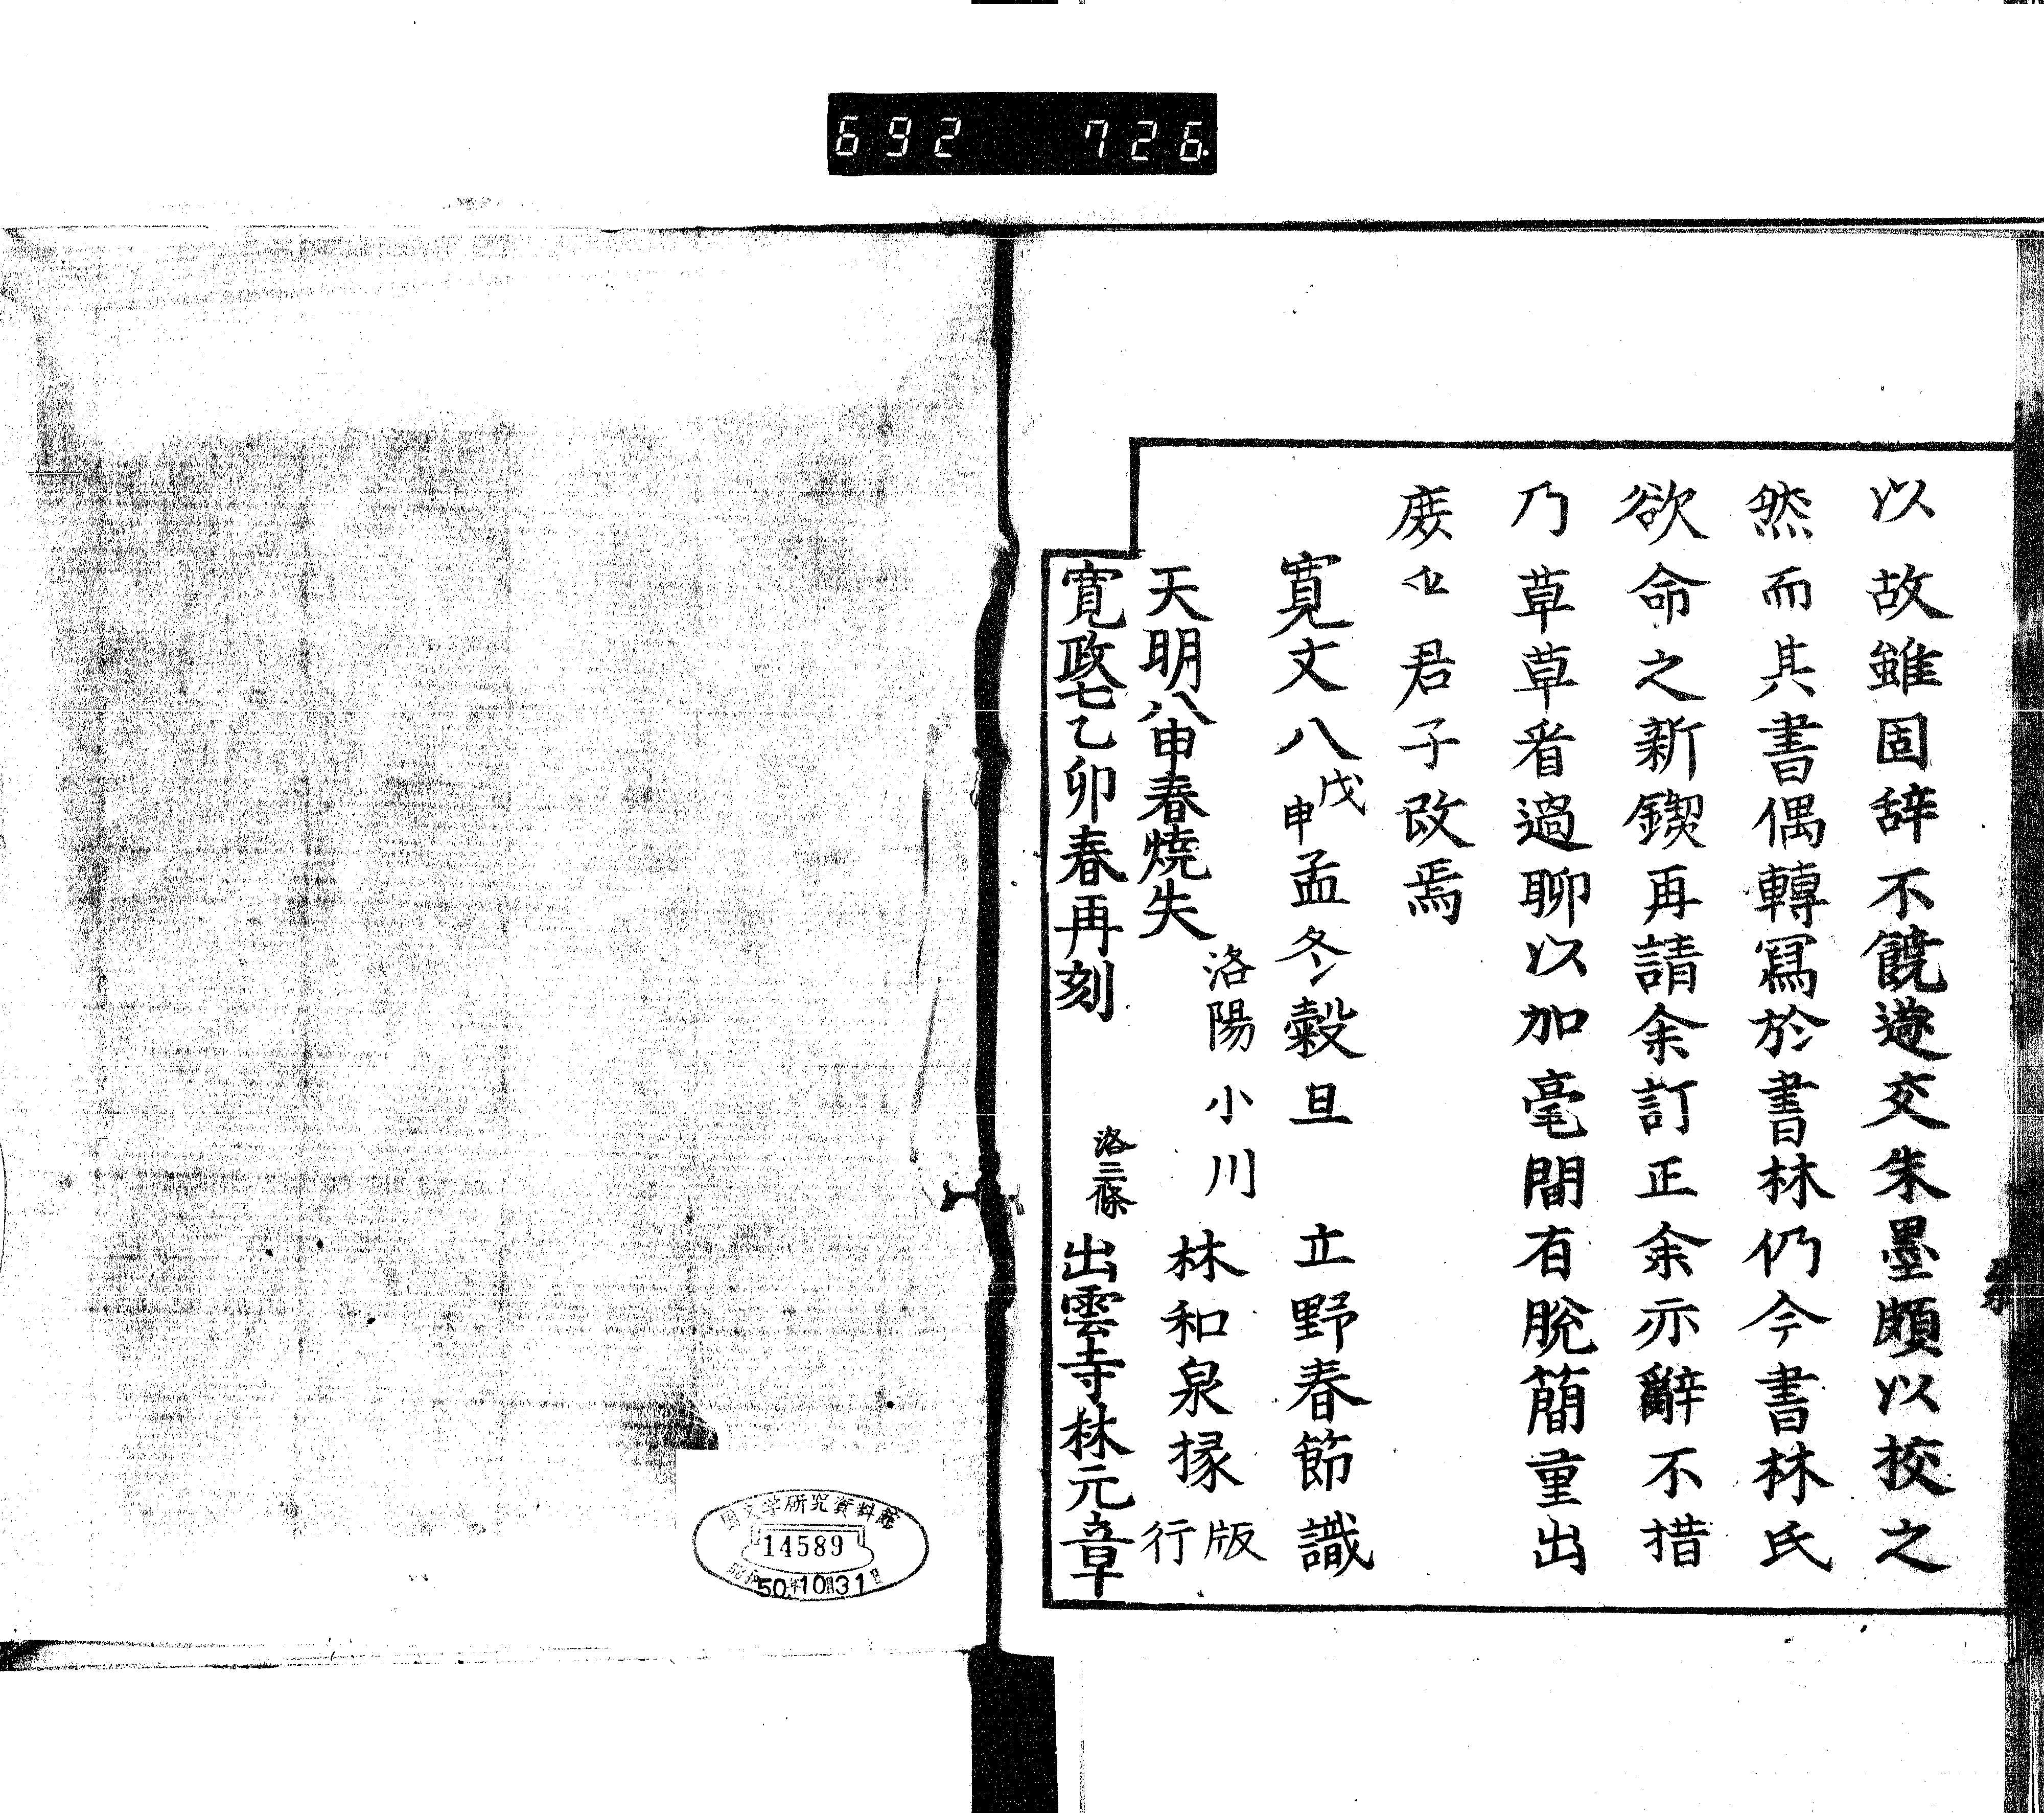 692 726.
以故雖固辞不饒遂交朱墨頗以挍之
然而其書偶轉寫於書林仍今書林氏
欲命之新鍥再請余訂正余亦辭不措
乃草草看過聊以加毫間有脫簡重出
庶㐰君子改焉
寛文八戊申孟冬穀旦 立野春節識
洛陽小川 林和泉掾 版行
天明八申春焼失
寛政七乙卯春再刻 洛三條 出雲寺林元章
国文学研究資料館
14589
昭和50年10月31日